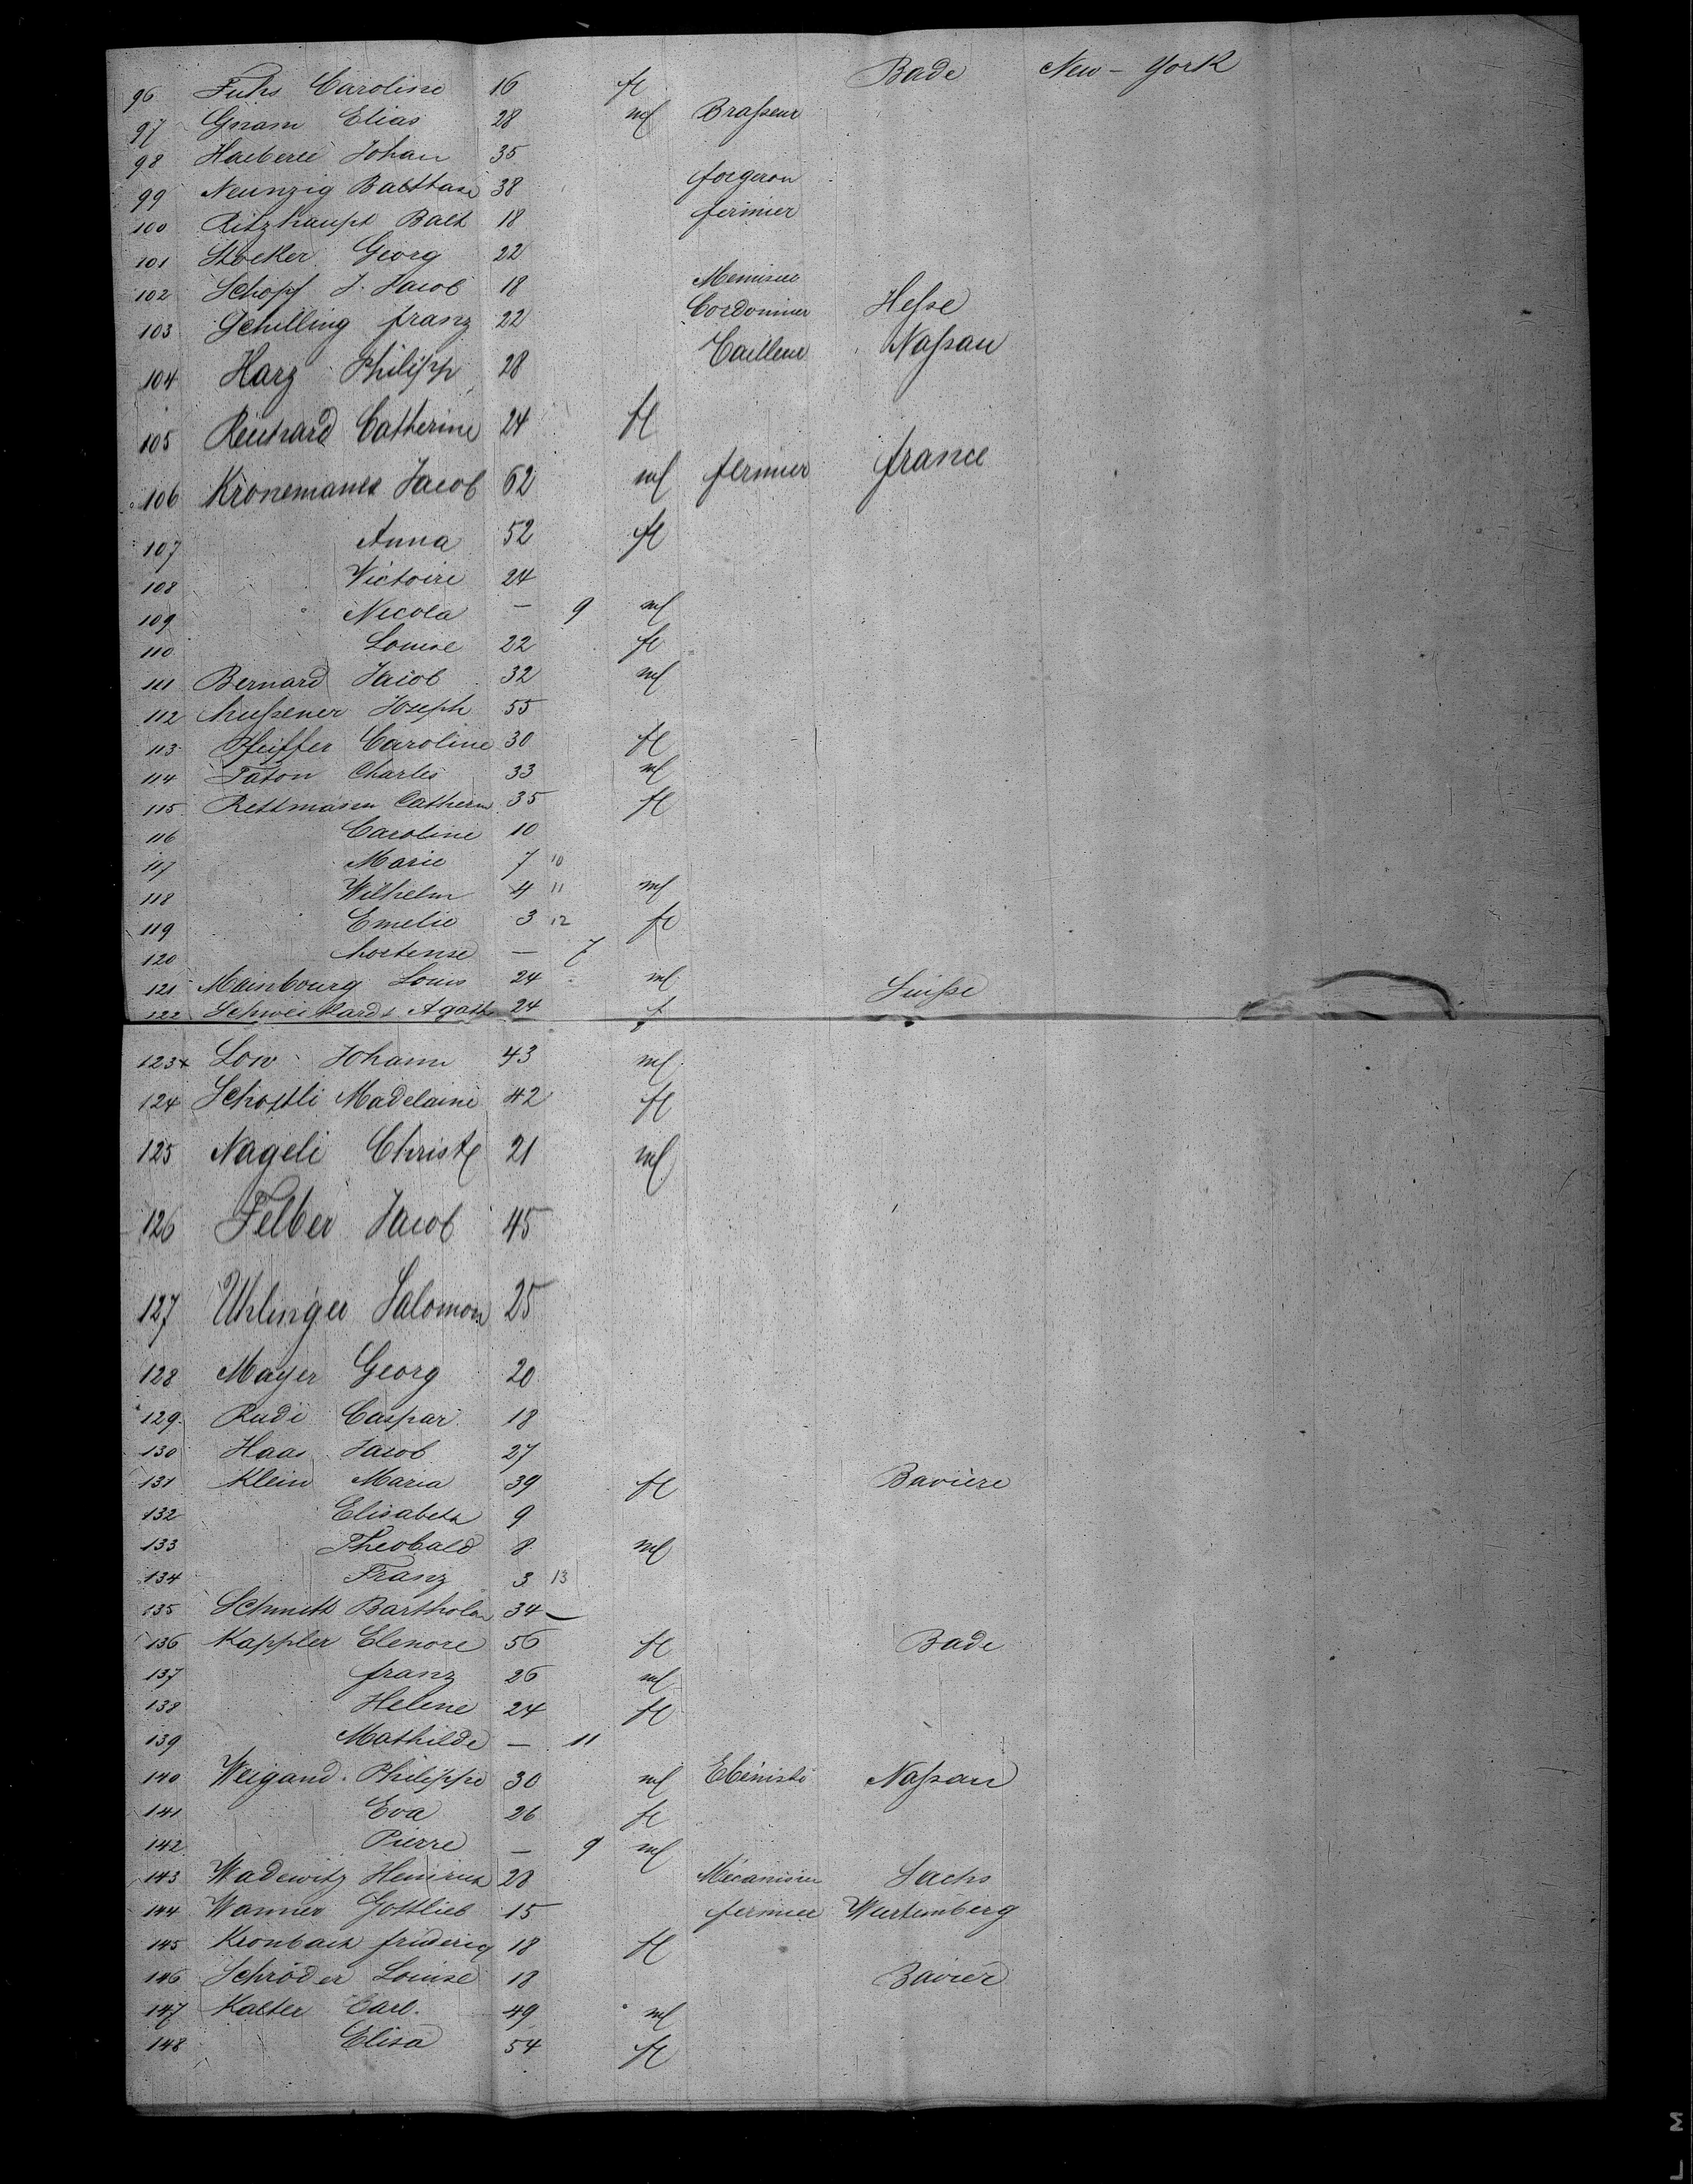 96 Fuhs Caroline 16 fl Bade New-York
97 Gnam Elias 28 ml Braſseur
98 Haeberle Johan 35
99 Neunzig Balthasar 38 forgeron
100 Ritzhaupt Balt 18 fermier
101 Stocker Georg 22
102 Schopf J. Jacob 18 Menuisier
103 Schilling franz 22 Cordonnier Heſse
104 Harz Philipp 28 Tailleur Naſsau
105 Reichard Catherine 24 fl
106 Jacob 62 ml fermier france
107 Anna 52 fl
108 Victoire 24
109 Nicola — 9 ml
110 Louise 22 fl
111 Bernard Jacob 32 ml
112 Joseph 55
113 Pfeiffer Caroline 30 fl
114 Taton Charles 33 ml
115 Catherin 35 fl
116 Caroline 10
117 Marie 7 10
118 Wilhelm 4 11 ml
119 Emelie 3 12 fl
120 hortense — 7
121 Mainbourg Louis 24 ml Suiſse
122 Schweikardt Agath 24 f
123 Low Johann 43 ml
124 Madelaine 42 fl
125 Nageli Christ 21 ml
126 Felber Jacob 45
127 Uhlinger Salomon 25
128 Mayer Georg 20
129 Rudi Caspar 18
130 Haas Jacob 27
131 Klein Maria 39 fl Baviere
132 Elisabeth 9
133 Theobald 8 ml
134 Franz 3 13
135 Schmitt Bartholom 34 —
136 Kappler Elenore 56 fl Bade
137 franz 26 ml
138 Helene 24 fl
139 Mathilde — 11
140 Weigand Philippe 30 ml Ebeniste Naſsau
141 Eva 26 fl
142 Pierre — 9 ml
143 Wadewitz Heinrich 28 Mecanicien Sachs
144 Wanner Gottlieb 15 fermier Wurtemberg
145 Kronbach friderig 18 fl
146 Schröder Louise 18 Bavier
147 Kalter Carl. 49 ml
148 Elisa 54 fl
L M